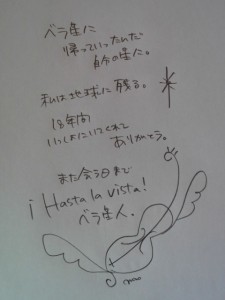 ベラ星に
帰っていったんだ
自分の星に。
私は地球に残る。
18年間
いっしょにいてくれて
ありがとう。
また会う日まで
¡Hasta la vista!
ベラ星人.